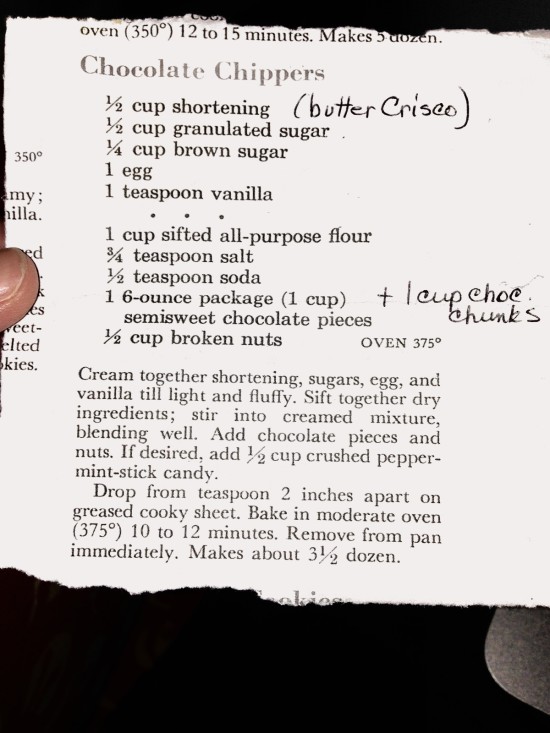 oven (350°) 12 to 15 minutes. Makes 5 dozen.
Chocolate Chippers
½ cup shortening (butter Crisco)
½ cup granulated sugar
¼ cup brown sugar
1 egg
1 teaspoon vanilla
. . .
1 cup sifted all-purpose flour
¾ teaspoon salt
½ teaspoon soda
1 6-ounce package (1 cup) + 1 cup choc.
semisweet chocolate pieces chunks
½ cup broken nuts OVEN 375°
Cream together shortening, sugars, egg, and
vanilla till light and fluffy. Sift together dry
ingredients; stir into creamed mixture,
blending well. Add chocolate pieces and
nuts. If desired, add ½ cup crushed pepper-
mint-stick candy.
Drop from teaspoon 2 inches apart on
greased cooky sheet. Bake in moderate oven
(375°) 10 to 12 minutes. Remove from pan
immediately. Makes about 3½ dozen.
350°